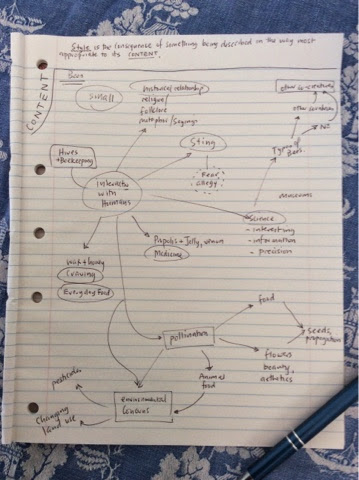 Style is the consequence of something being described in the way most
appropriate to its CONTENT.
CONTENT
Bees
Small
historical relationship
religion/
folklore
metaphor/Sayings
Sting
Fear
allergy
Hives
+ Beekeeping
Interacts
with
Humans
other
Types of
Bees.
Science
- interesting
- information
- precision
Propolis + Jelly, venom
Medicine
Wax + honey
Everyday Food
pollination
food
seeds,
propagation
flowers
beauty,
aesthetics
Animal
food
environmental
pesticides
Changing
land use